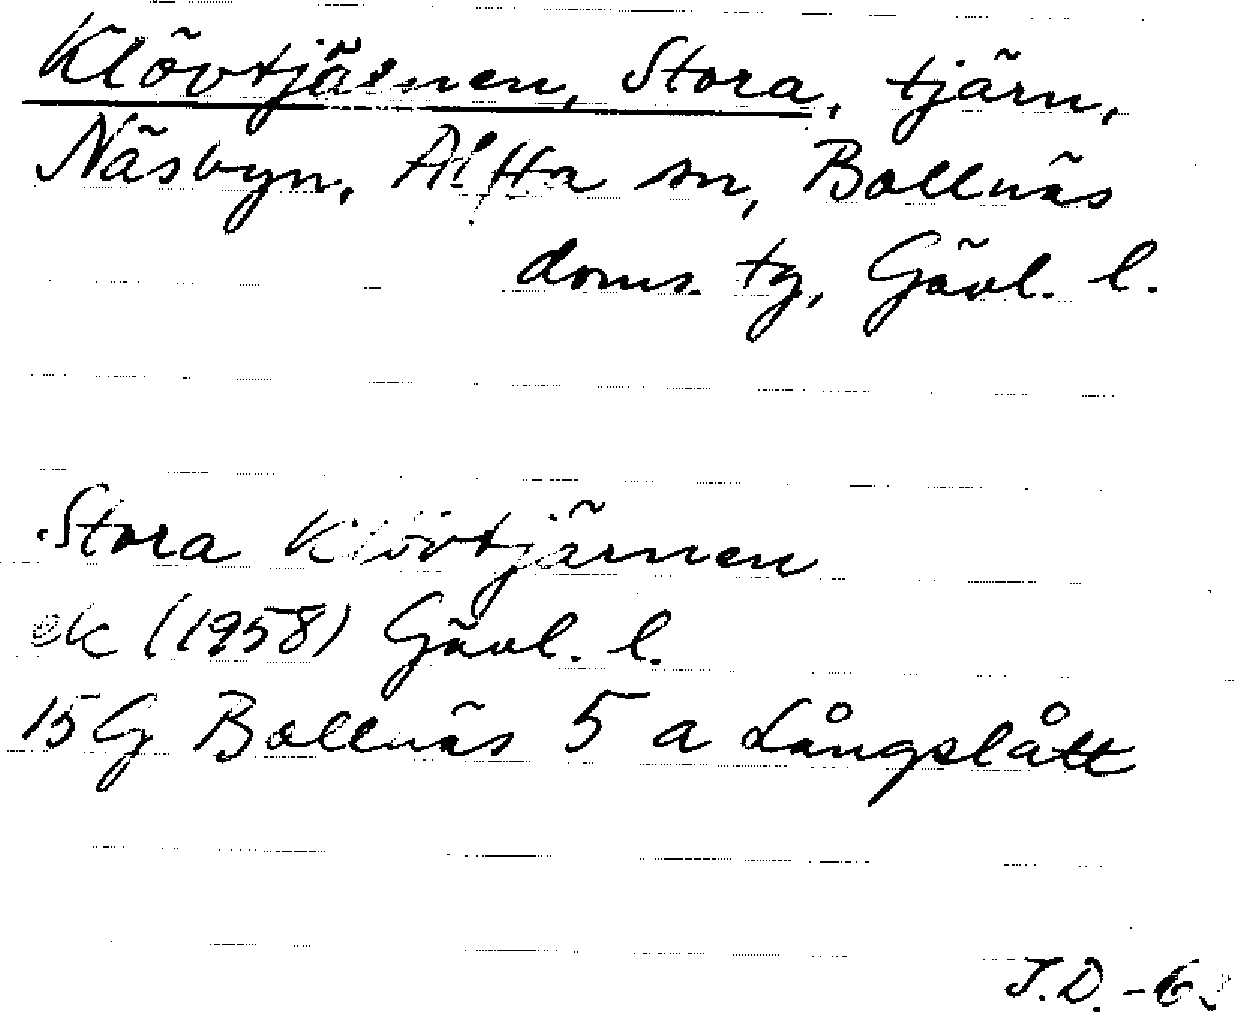 Klövtjärnen, Stora, tjärn,
Näsbyn, Alfta sn, Bollnäs
doms. tg, Gävl. l.
Stora Klövtjärnen
ek (1958) Gävl. l.
15G Bollnäs 5 a Långslått
J.D.